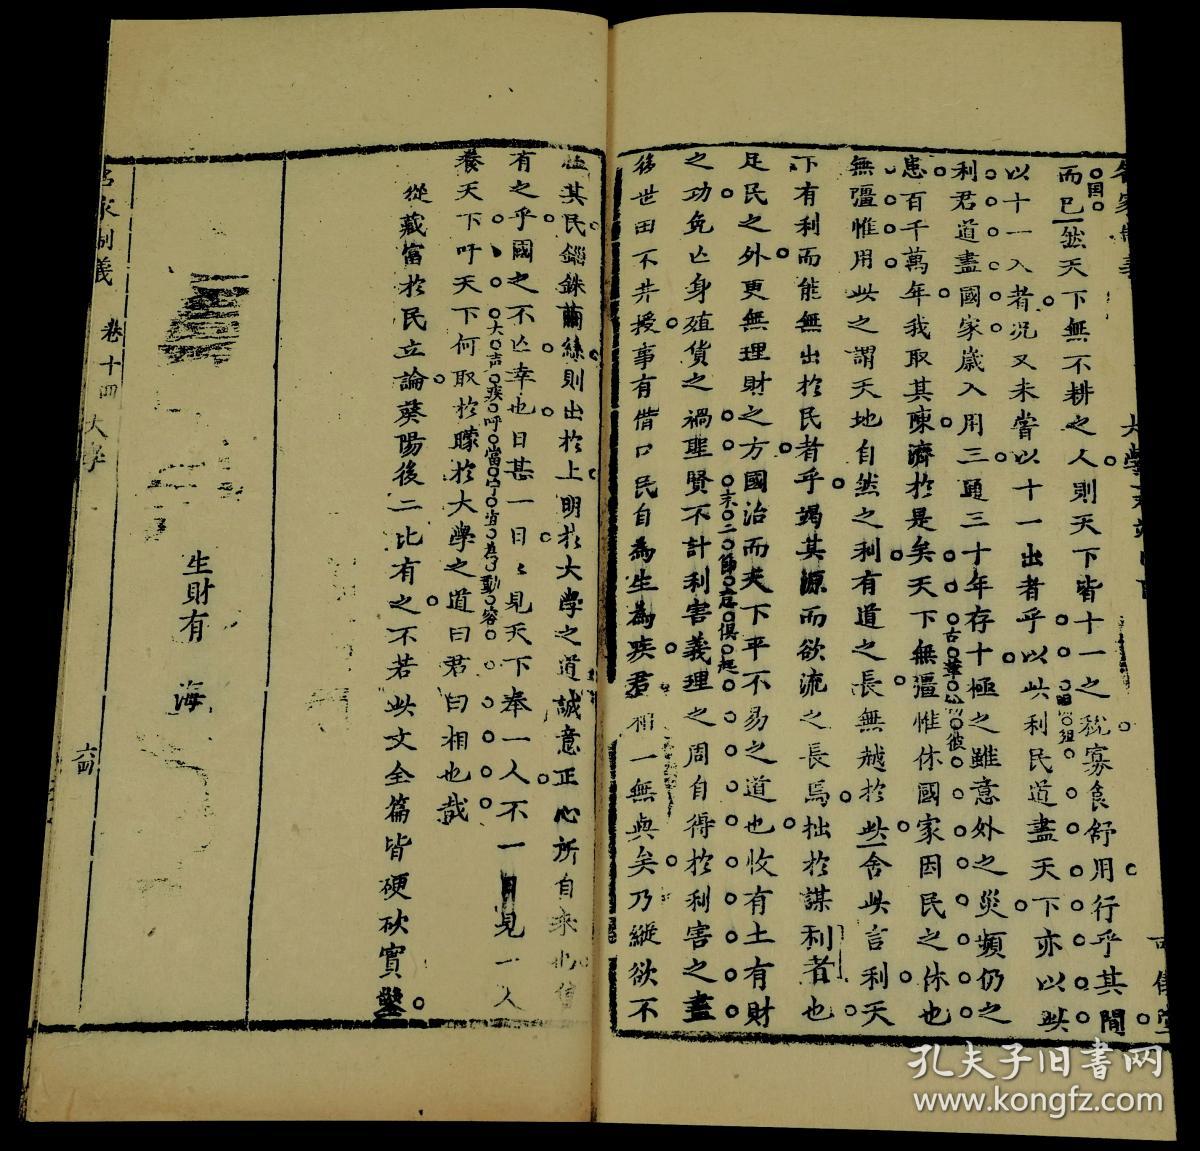 而已然天下無不耕之人則天下皆十一之稅寡食舒用行乎其間
以十一入者况又未嘗以十一出者乎以此利民道盡天下亦以此
利君道盡國家歲入用三通三十年存十極之雖意外之災頻仍之
患百千萬年我取其陳濟於是矣天下無彊惟休國家因民之休也
無彊惟用此之謂天地自然之利有道之長無越於此舍此言利天
下有利而能無出於民者乎竭其源而欲流之長焉拙於謀利者也
足民之外更無理財之方國治而天下平不易之道也收有土有財
之功免亡身殖貨之禍聖賢不計利害義理之周自得於利害之盡
後世田不井授事有借口民自為生為疾君相一無與矣乃縱欲不
其民錙銖繭絲則出於上明於大學之道誠意正心所自來也
有之乎國之不亡幸也日甚一日見天下奉一人不一見一人
養天下吁天下何取於矇於大學之道曰君曰相也哉
大声疾呼當
從藏富於民立論葵陽後二比有之不若此文全篇皆硬砍實鑿
生財有 海
名家制義 卷十四 大學
孔夫子旧書网
www.kongfz.com